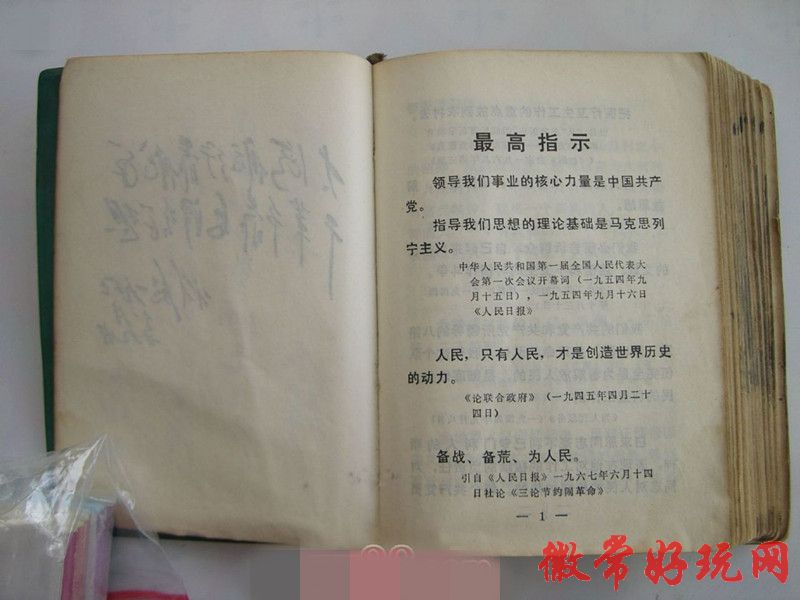 最高指示
领导我们事业的核心力量是中国共产
党。
指导我们思想的理论基础是马克思列
宁主义。
中华人民共和国第一届全国人民代表大
会第一次会议开幕词（一九五四年九
月十五日），一九五四年九月十六日
《人民日报》
人民，只有人民，才是创造世界历史
的动力。
《论联合政府》（一九四五年四月二十
四日）
备战、备荒、为人民。
引自《人民日报》一九六七年六月十四
日社论《三论节约闹革命》
— 1 —
徽常好玩网